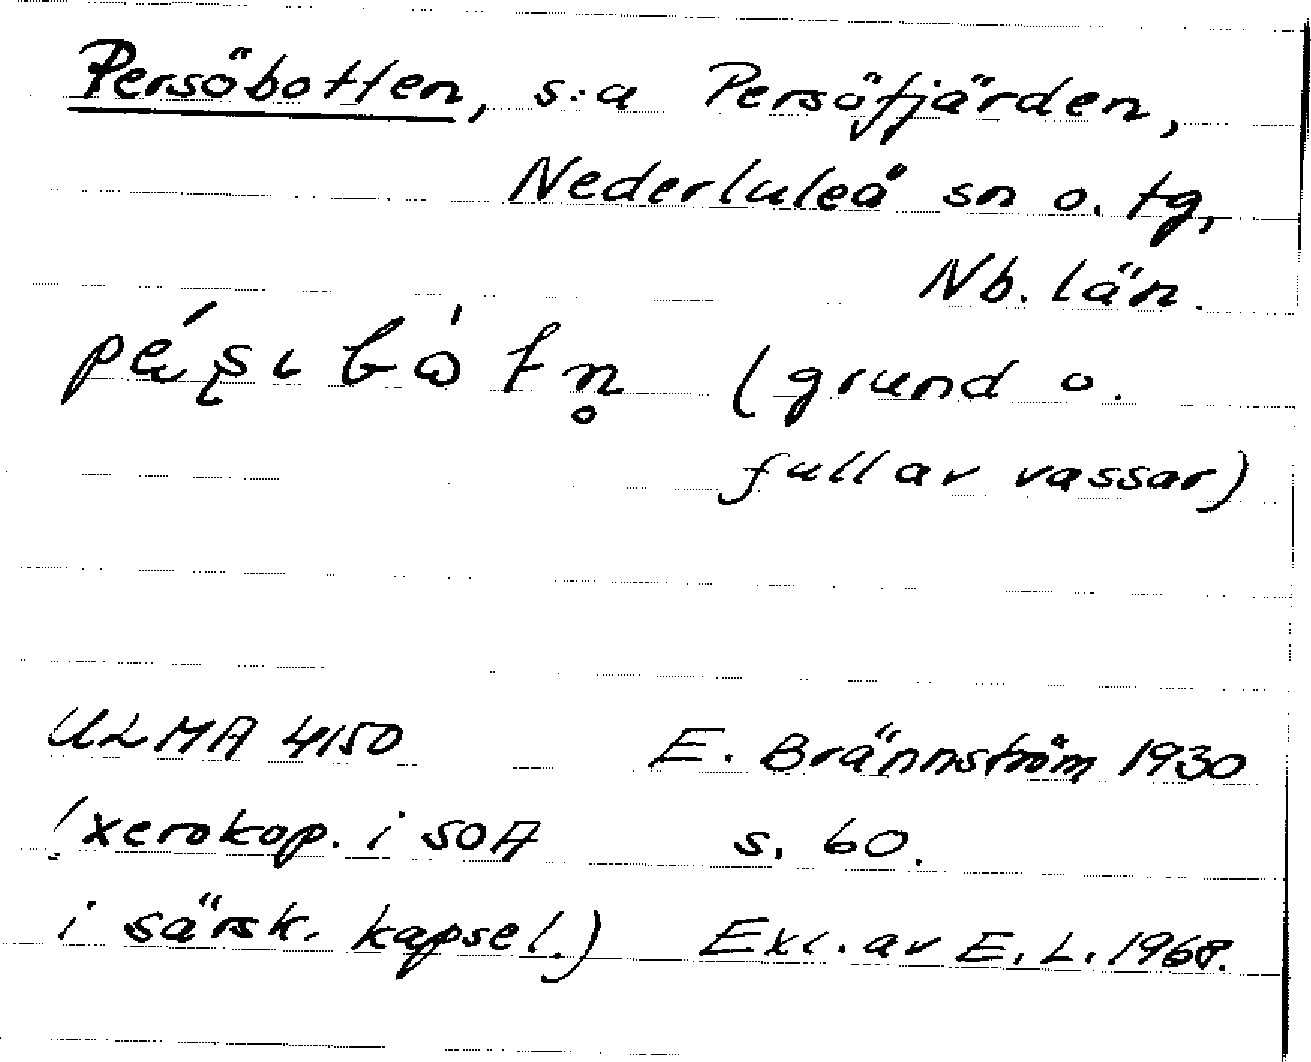 Persöbotten, s:a Persöfjärden,
Nederluleå sn o. tg,
Nb. län.
(grund o.
full av vassar)
ULMA 4150 E. Brännström 1930
(xerokop. i SOA s. 60.
i särsk. kapsel.) Exc. av E. L. 1968.